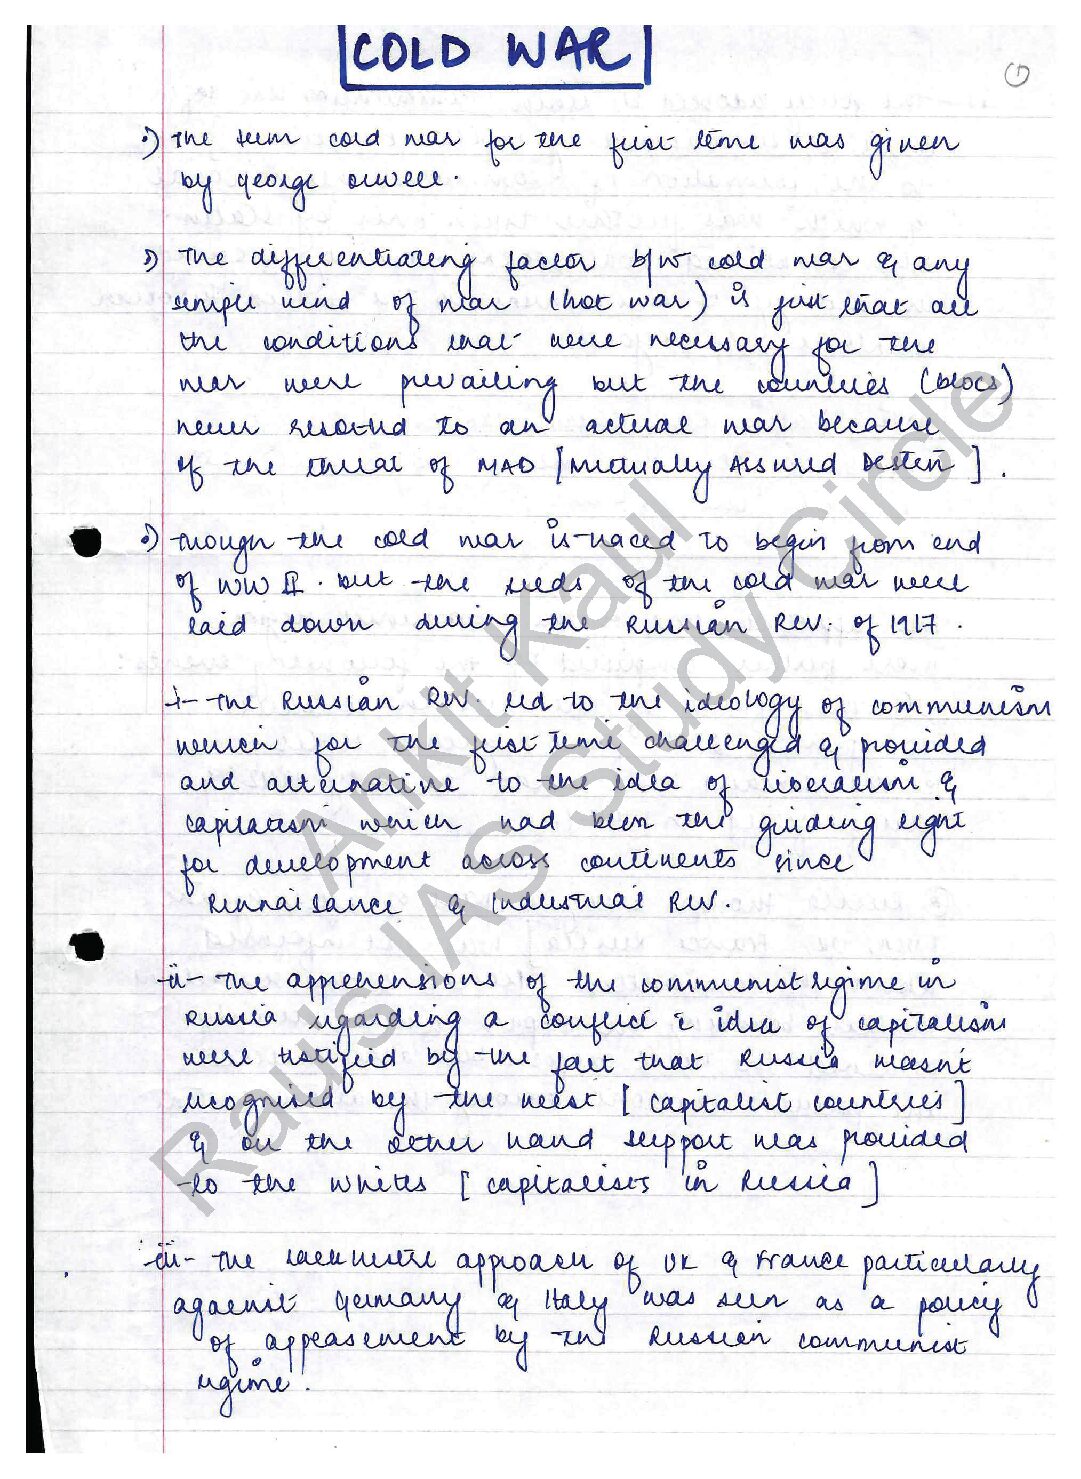 COLD WAR
1
•) The term cold war for the first time was given
by George Orwell.
•) The differentiating factor b/w cold war & any
simple kind of war (hot war) is just that all
the conditions that were necessary for the
war were prevailing but the countries (blocs)
never resorted to an actual war because
of the threat of MAD [Mutually Assured Destn].
•) Though the cold war is traced to begin from end
of WW II. but the seeds of the cold war were
laid down during the Russian Rev. of 1917.
i- The Russian Rev. led to the ideology of communism
which for the first time challenged & provided
and alternative to the idea of liberalism &
capitalism which had been the guiding light
for development across continents since
Rennaisance & Industrial Rev.
ii- The apprehensions of the communist regime in
Russia regarding a conflict c̄ idea of capitalism
were testified by the fact that Russia wasn't
recognised by the west [capitalist countries]
& on the other hand support was provided
to the whites [capitalists in Russia]
iii- The lacklustre approach of UK & France particularly
against Germany & Italy was seen as a policy
of appeasement by the Russian communist
regime.
Ankit Kaul
Raus IAS Study Circle